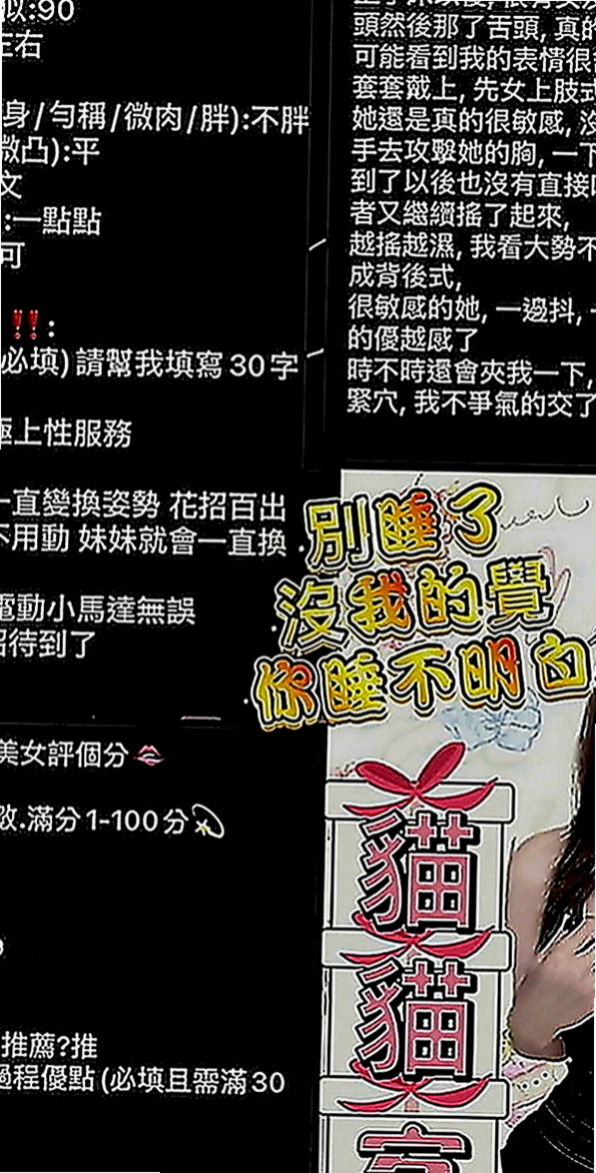 似:90
左右
身/勻稱/微肉/胖):不胖
微凸):平
文
:一點點
可
‼️:
必填)請幫我填寫30字
極上性服務
一直變換姿勢 花招百出
不用動 妹妹就會一直換
電動小馬達無誤
招待到了
美女評個分💋
數.滿分1-100分💫
推薦?推
過程優點(必填且需滿30
頭然後那了舌頭, 真的
可能看到我的表情很
套套戴上, 先女上肢式
她還是真的很敏感, 沒
手去攻擊她的胸, 一下
到了以後也沒有直接
者又繼續搖了起來,
越搖越濕, 我看大勢不
成背後式,
很敏感的她, 一邊抖,
的優越感了
時不時還會夾我一下,
緊穴, 我不爭氣的交了
別睡了
沒我的覺
你睡不明白
貓
貓